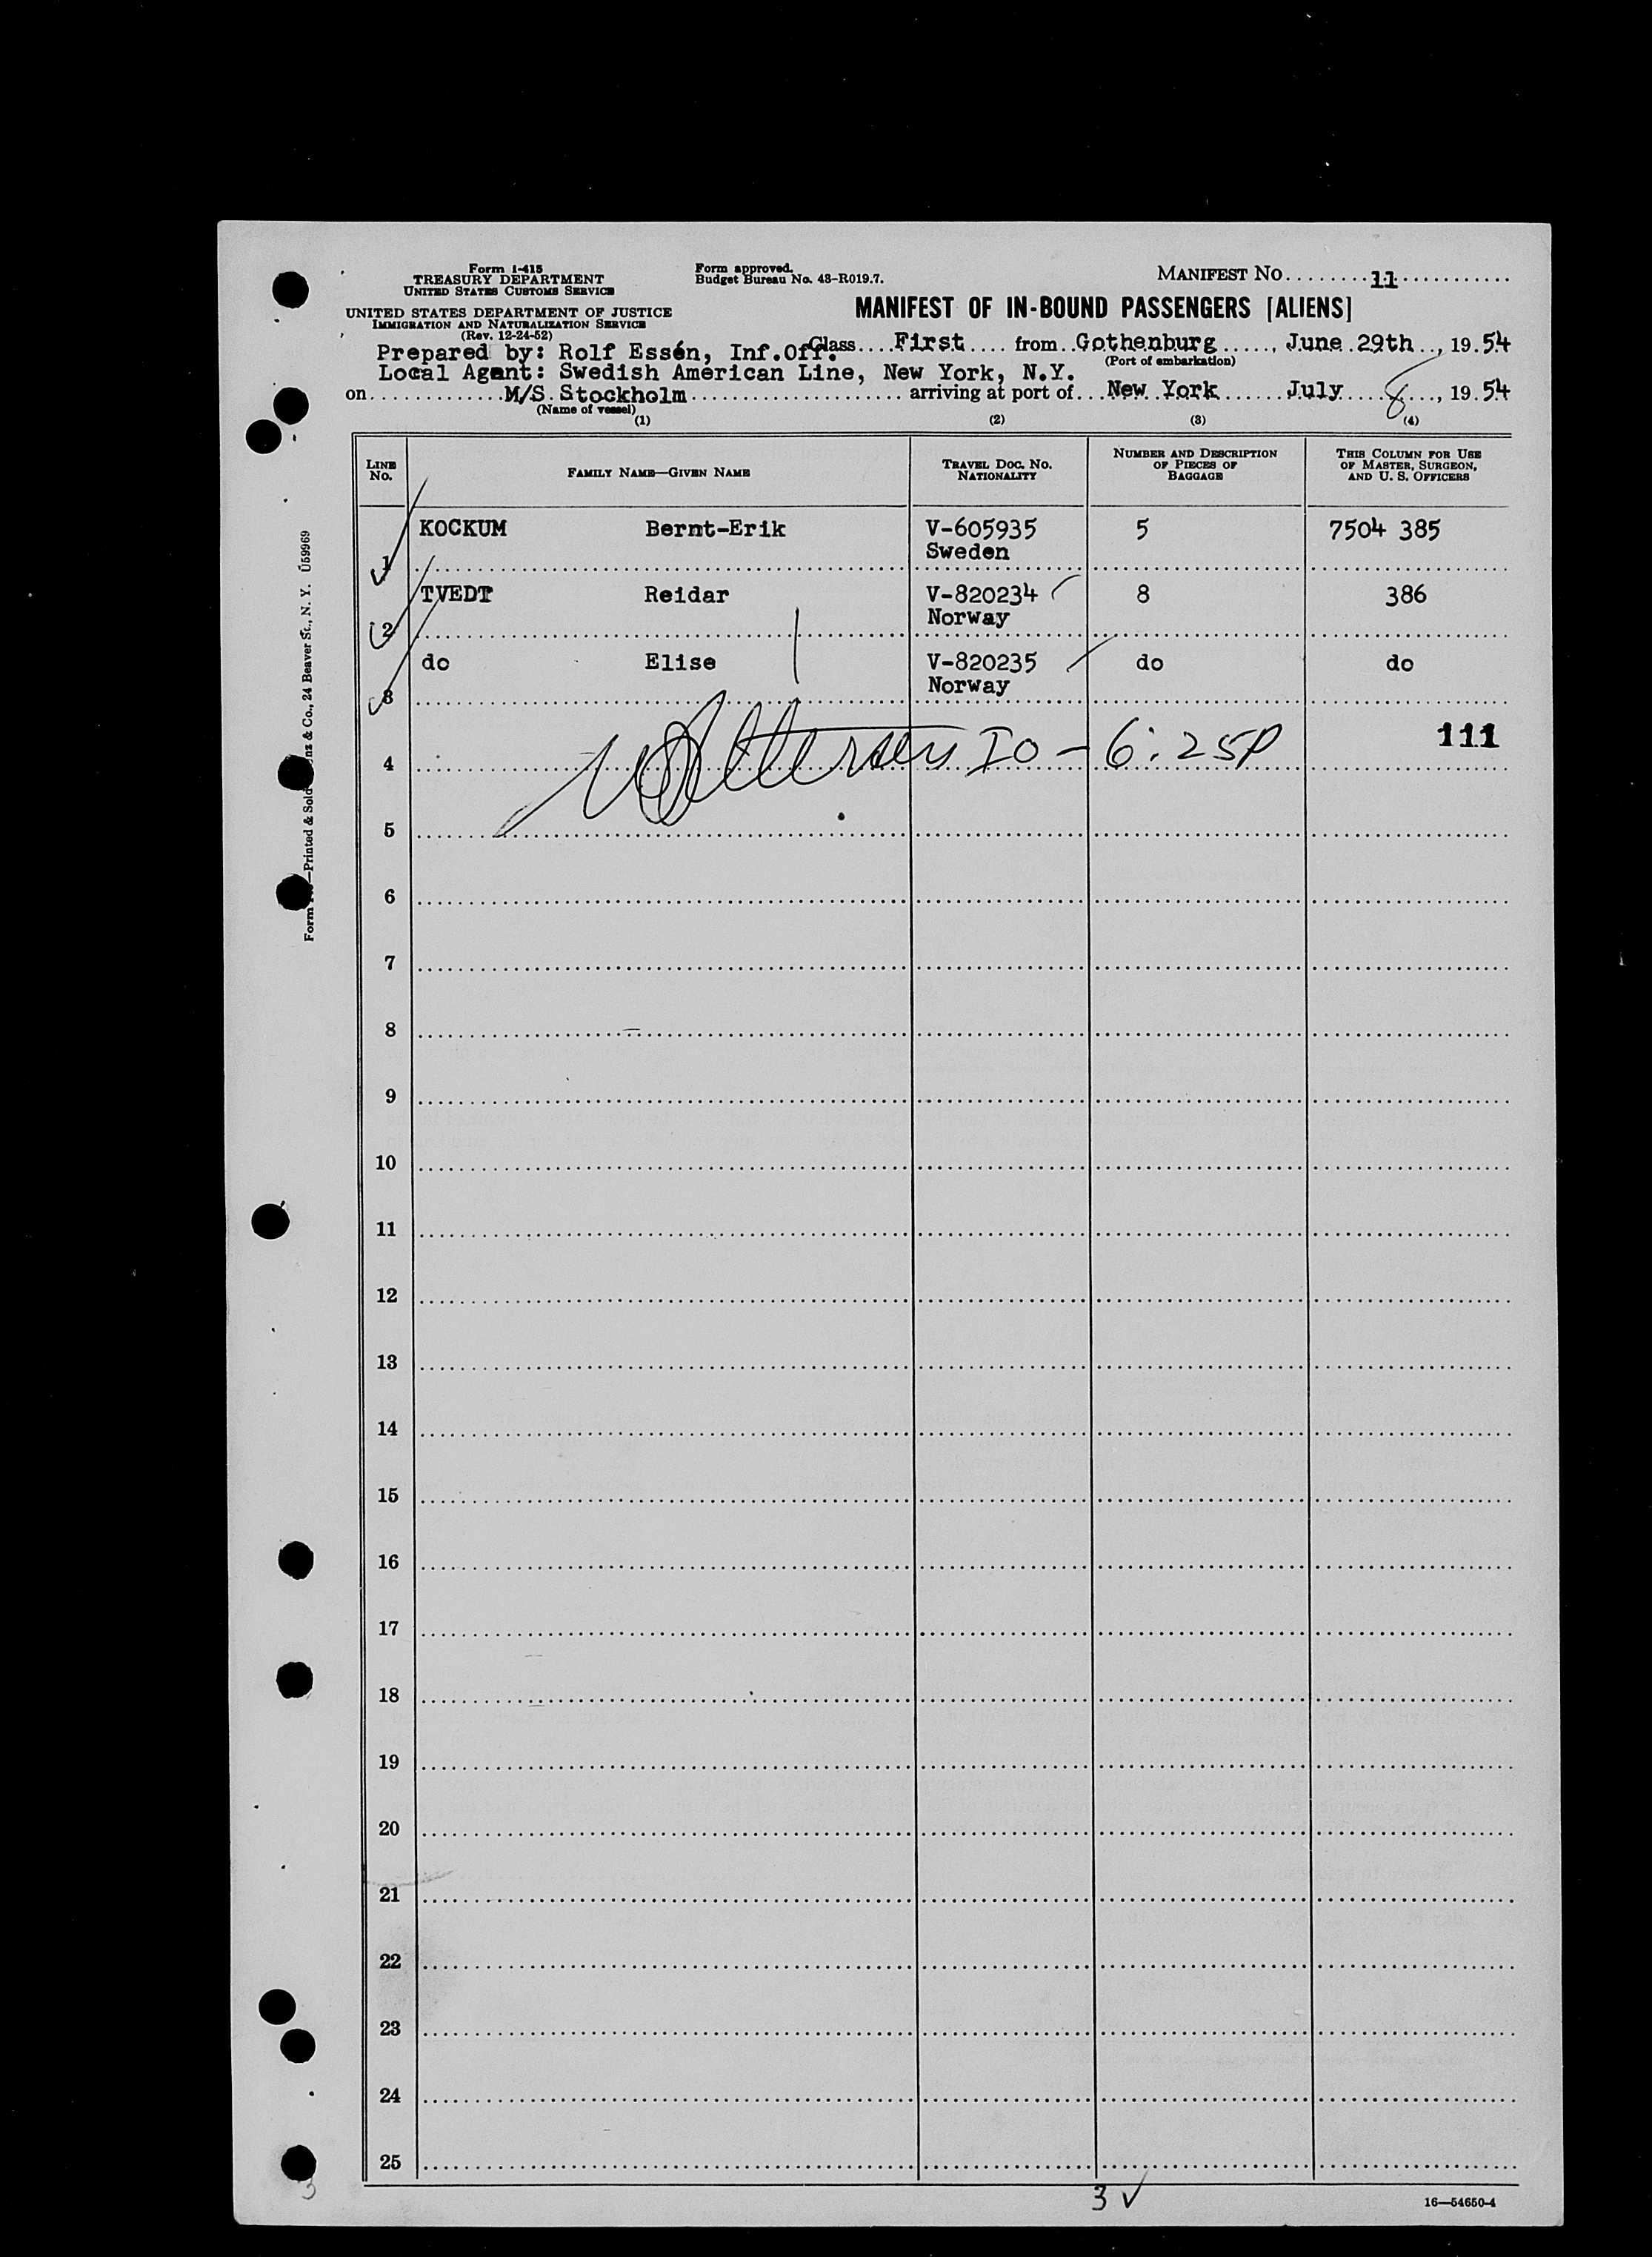 Form I-415
TREASURY DEPARTMENT
UNITED STATES CUSTOMS SERVICE
UNITED STATES DEPARTMENT OF JUSTICE
IMMIGRATION AND NATURALIZATION SERVICE
(Rev. 12-24-52)
Form approved.
Budget Bureau No. 43-R019.7.
MANIFEST NO. 11
MANIFEST OF IN-BOUND PASSENGERS [ALIENS]
Prepared by: Rolf Essén, Inf.Off. Class First from Gothenburg, June 29th, 1954
(Port of embarkation)
Local Agent: Swedish American Line, New York, N.Y.
on M/S Stockholm arriving at port of New York July 8, 1954
(Name of vessel)
(1) (2) (3) (4)
LINE NO. FAMILY NAME—GIVEN NAME TRAVEL DOC. NO. NATIONALITY NUMBER AND DESCRIPTION OF PIECES OF BAGGAGE THIS COLUMN FOR USE OF MASTER, SURGEON, AND U. S. OFFICERS
1 KOCKUM Bernt-Erik V-605935 5 7504 385
Sweden
2 TVEDT Reidar V-820234 8 386
Norway
3 do Elise V-820235 do do
Norway
IO - 6:25P
111
4
5
6
7
8
9
10
11
12
13
14
15
16
17
18
19
20
21
22
23
24
25
3 ✓
3
16—54650-4
Form —Printed & Sold & Co., 24 Beaver St., N. Y. U59969